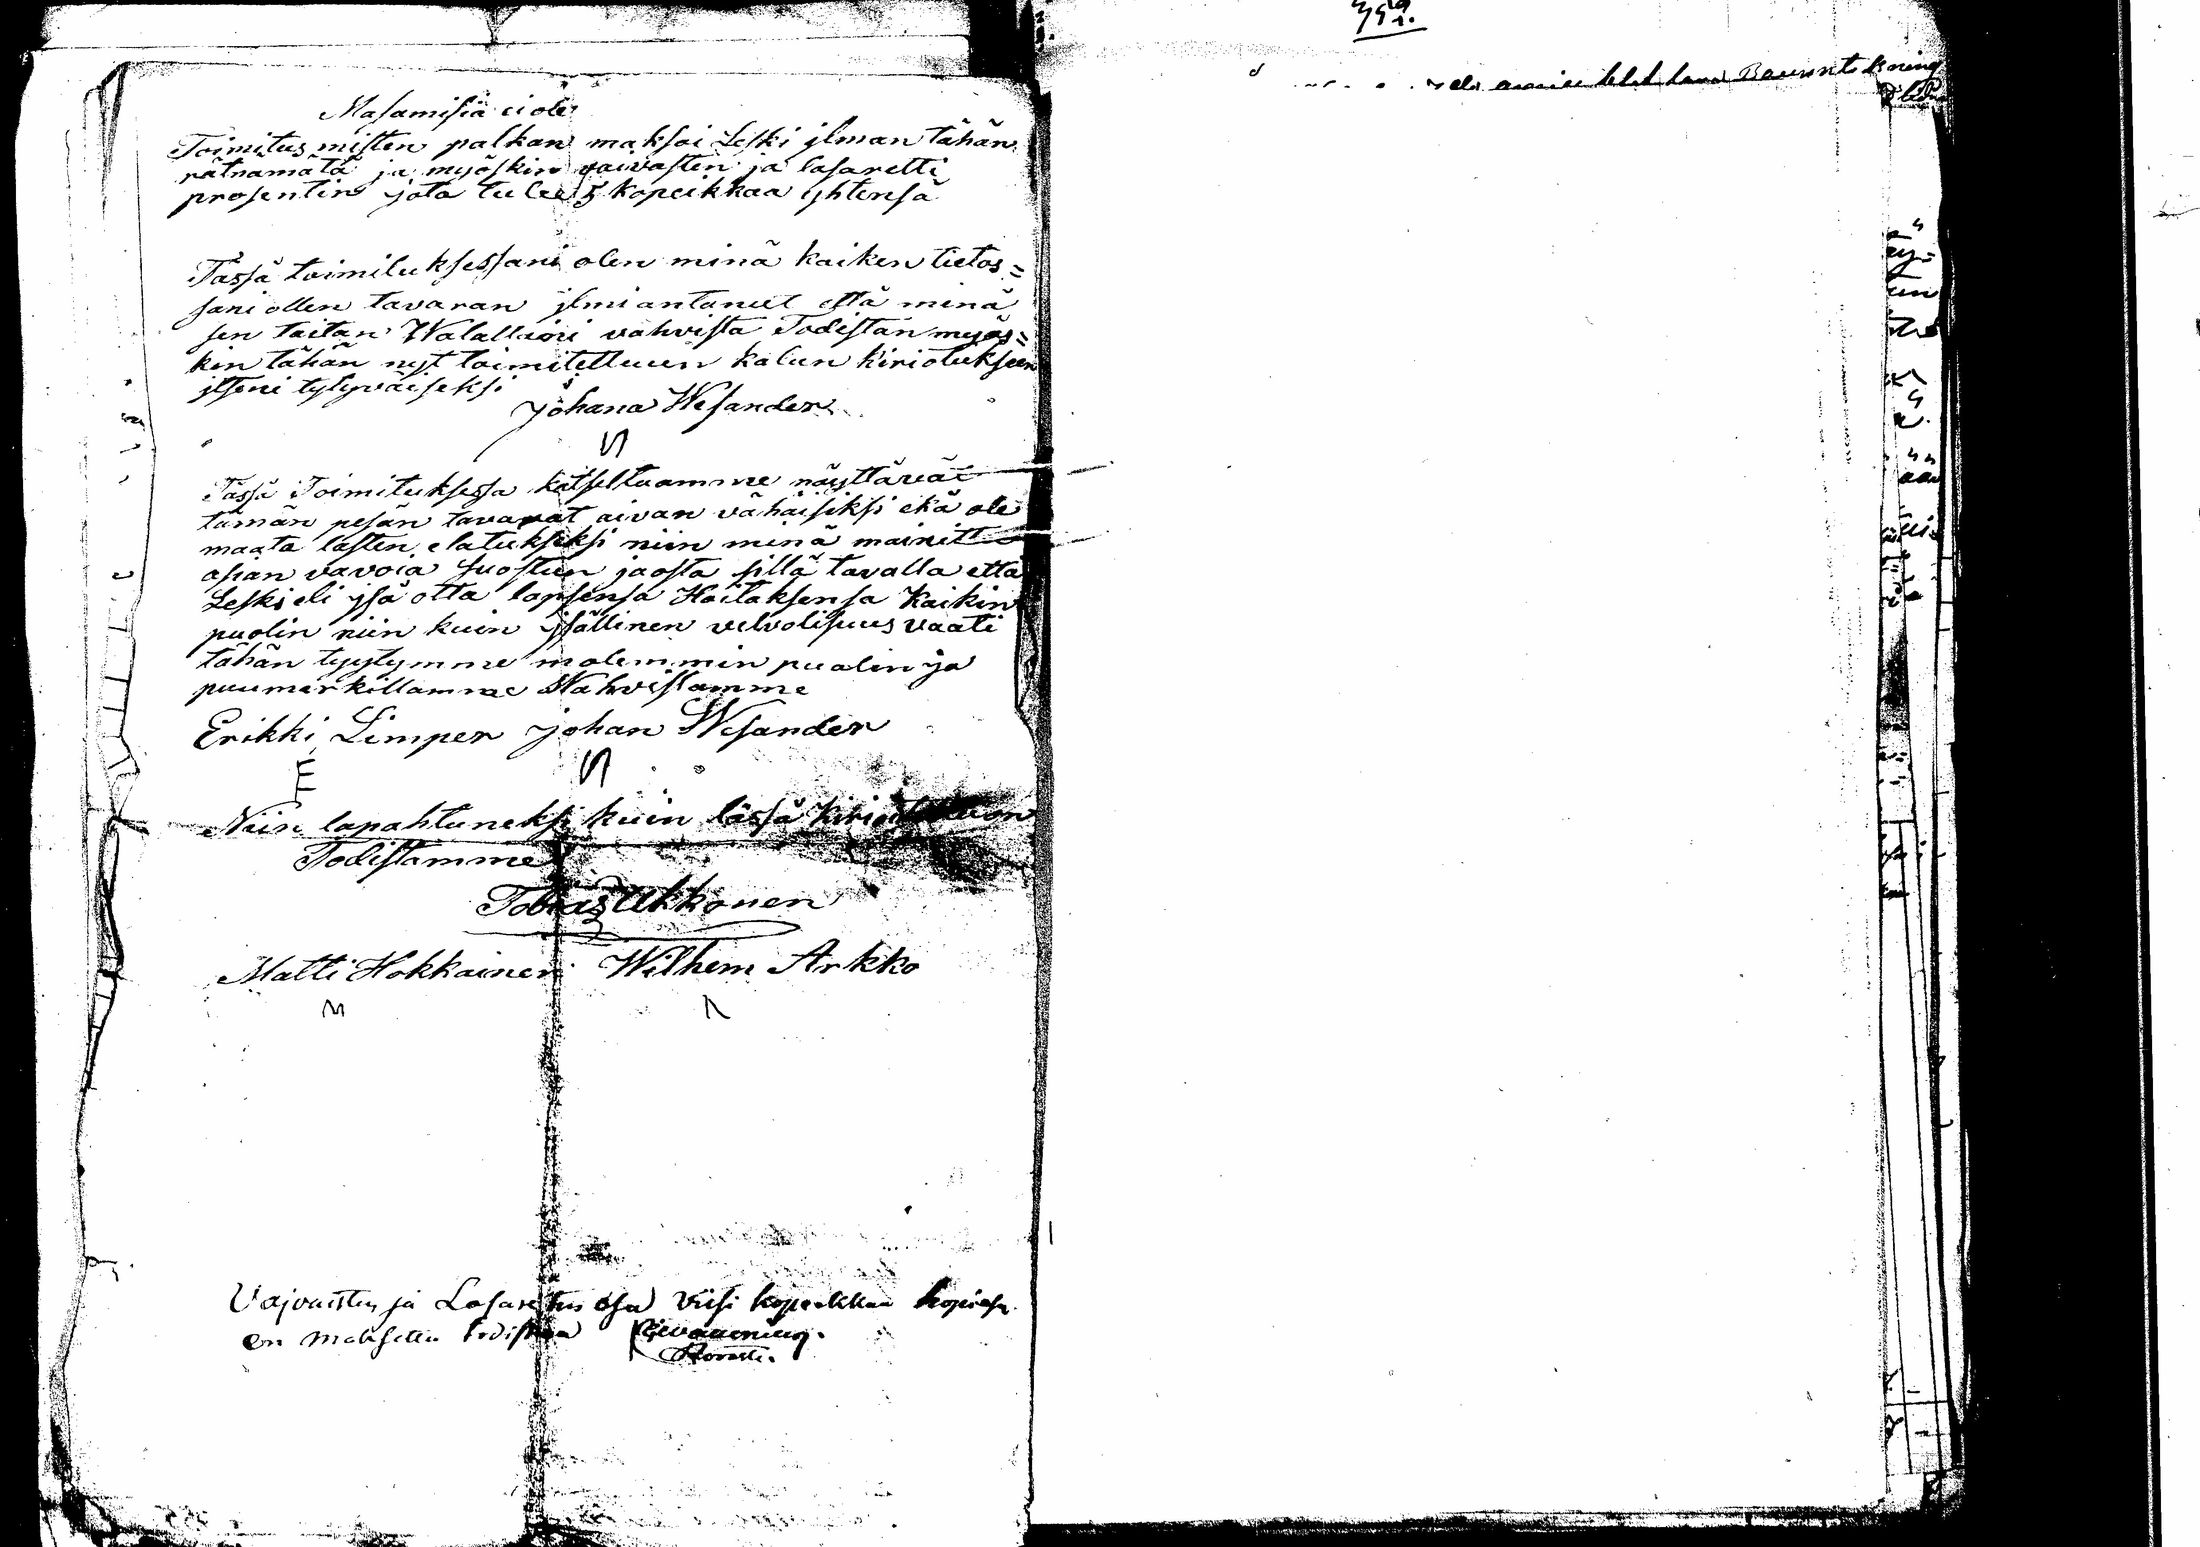 Masamisiä ei ole
Toimitus misten palkan maksoi Leski ilman tähän
rätnämätä ja myöskin vaivasten ja lasaretti
prosentin jota tulee 5 kopeikkaa yhtensä
Tässä toimituksessani olen minä kaiken tietos=
sani ollen tavaran ilmi antanut että minä
sen taitan Walallani vahvista Todistan myös=
kin tähän nyt toimitettuun kalun kiriotukseen
itseni tytyväiseksi
Johana Wesander
Tässä Toimituksessa katseltuamme näyttäreät
tämän pesän tavarat aivan vähäisiksi ekä ole
maata lasten elatukseksi niin minä mainitt
asian vavoia suostun jaosta sillä tavalla että
Leski eli isä otta lapsensa Hoitaksensa Kaikin
puolin niin kuin isällinen velvolisuus vaati
tähän tyytymme molemmin puolin ja
puumerkillamme Wahvistamme
Erikki Limper Johan Wesander
E
Niin tapahtuneksi kuin tässä on
Todistamme
Tobias Ukkonen
Matti Hokkainen Wilhem Arkko
M
Vajvaisten ja Lasaretin osa Viisi kopeekkaa hopiasa
on maksettu todistaa